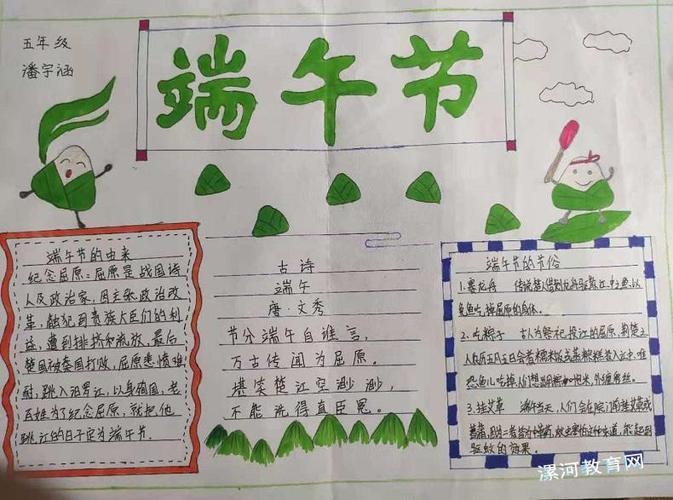 五年级
潘宇涵
端午节
端午节的由来
纪念屈原:屈原是战国诗
人及政治家,因主张政治改
革,触犯到贵族大臣们的利
益,遭到排挤和流放,最后
楚国被秦国打败,屈原悲愤难
耐,跳入汨罗江,以身殉国,老
百姓为了纪念屈原,就把他
跳江的日子定为端午节.
古诗
端午
唐·文秀
节分端午自谁言,
万古传闻为屈原.
堪笑楚江空渺渺,
不能洗得直臣冤.
端午节的节俗
1.赛龙舟 传说
鱼吃掉屈原的身体.
2.吃粽子 古人为祭祀投江的屈原,
人在五月五日
恐鱼儿吃掉
3.挂艾草 端午当天,人们会在
驱蚊的效果.
漯河教育网